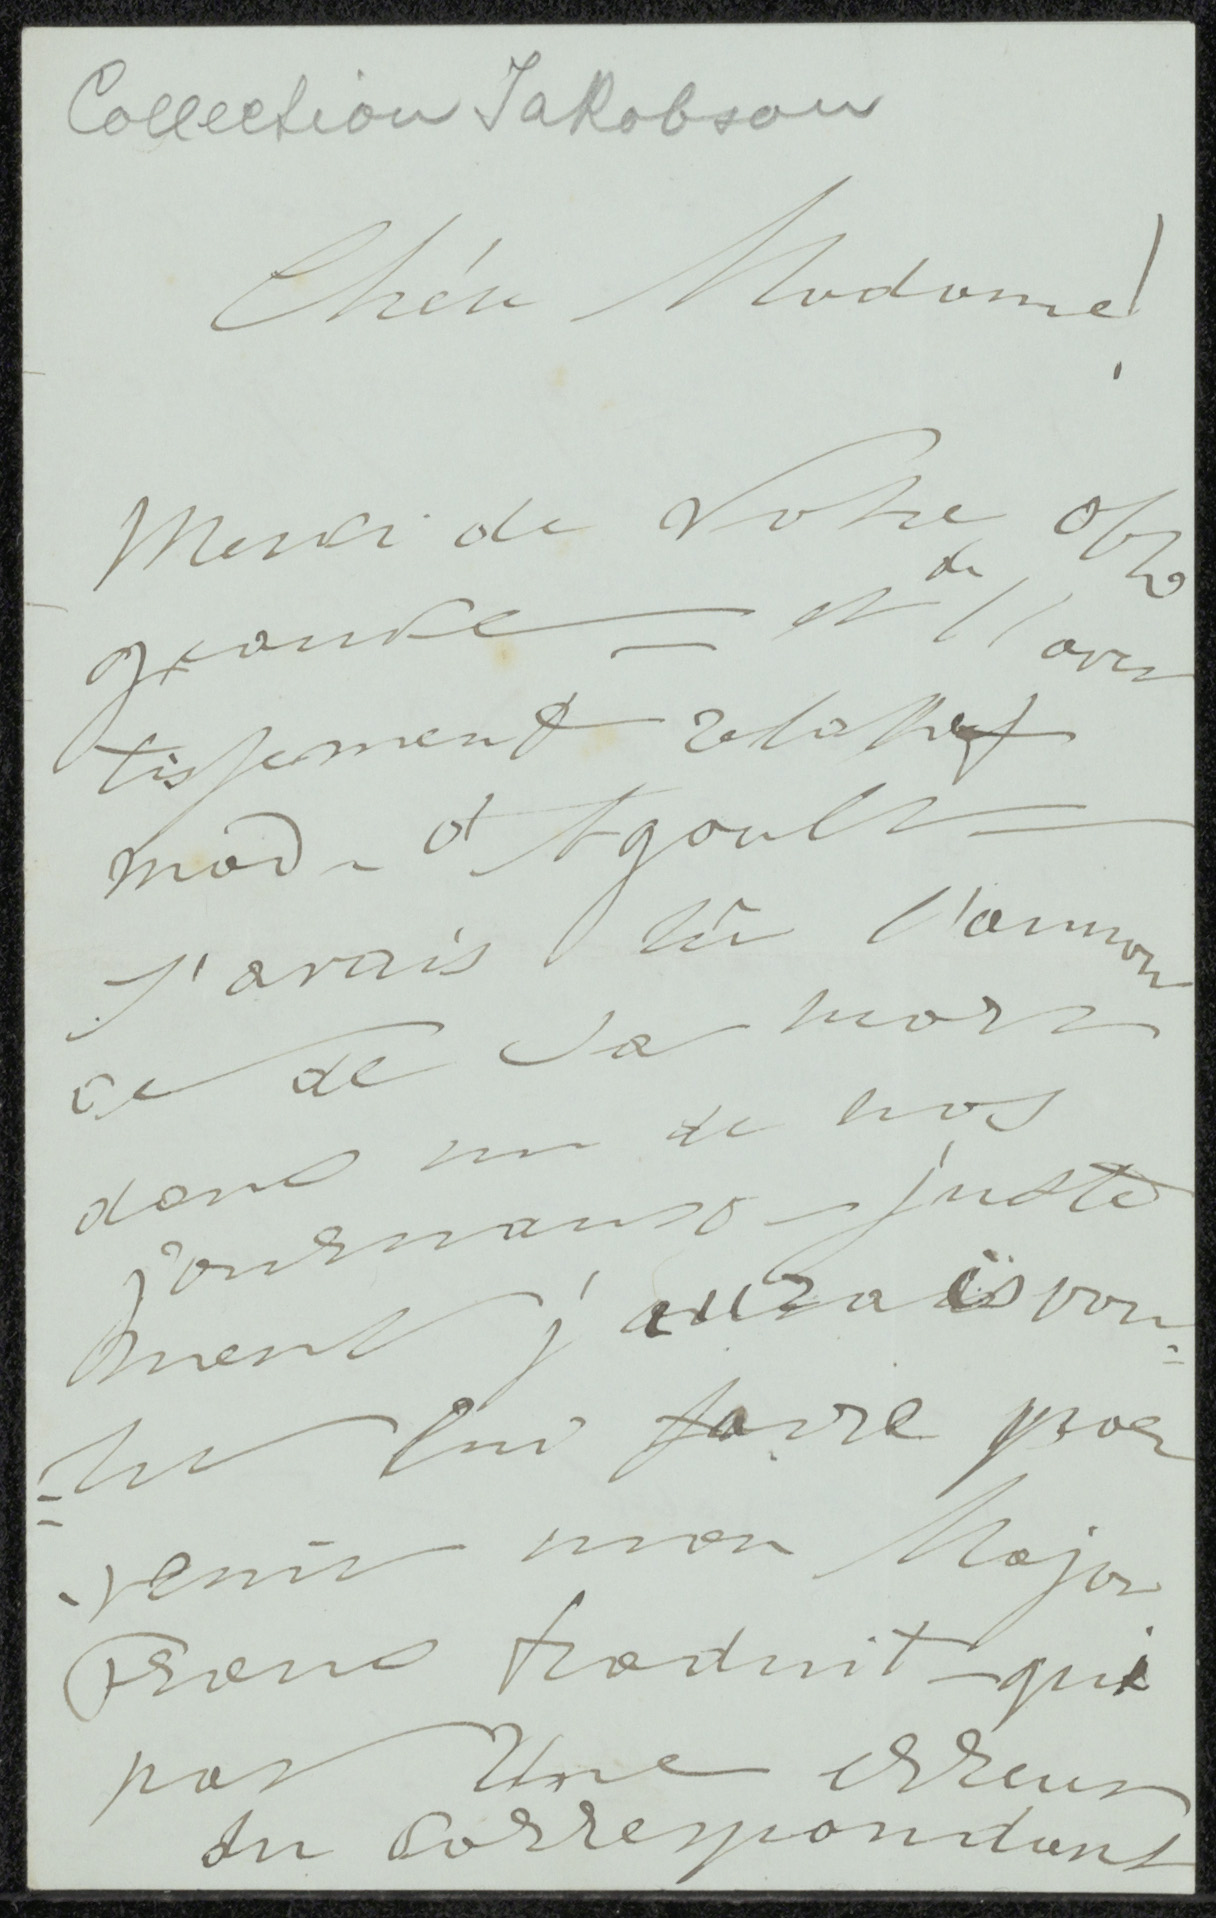 Collection Jakobson
Chère Madame!
Merci de votre obli
geance — et de l'aver
tissement relatif
mad. d'Agoult —
J'avais lû l'annon
ce de sa mort
dans un de nos
journaux — juste
ment j'aurais vou=
=lu lui faire par
venir mon Major
Frans traduit — qui
par une erreur
du correspondant